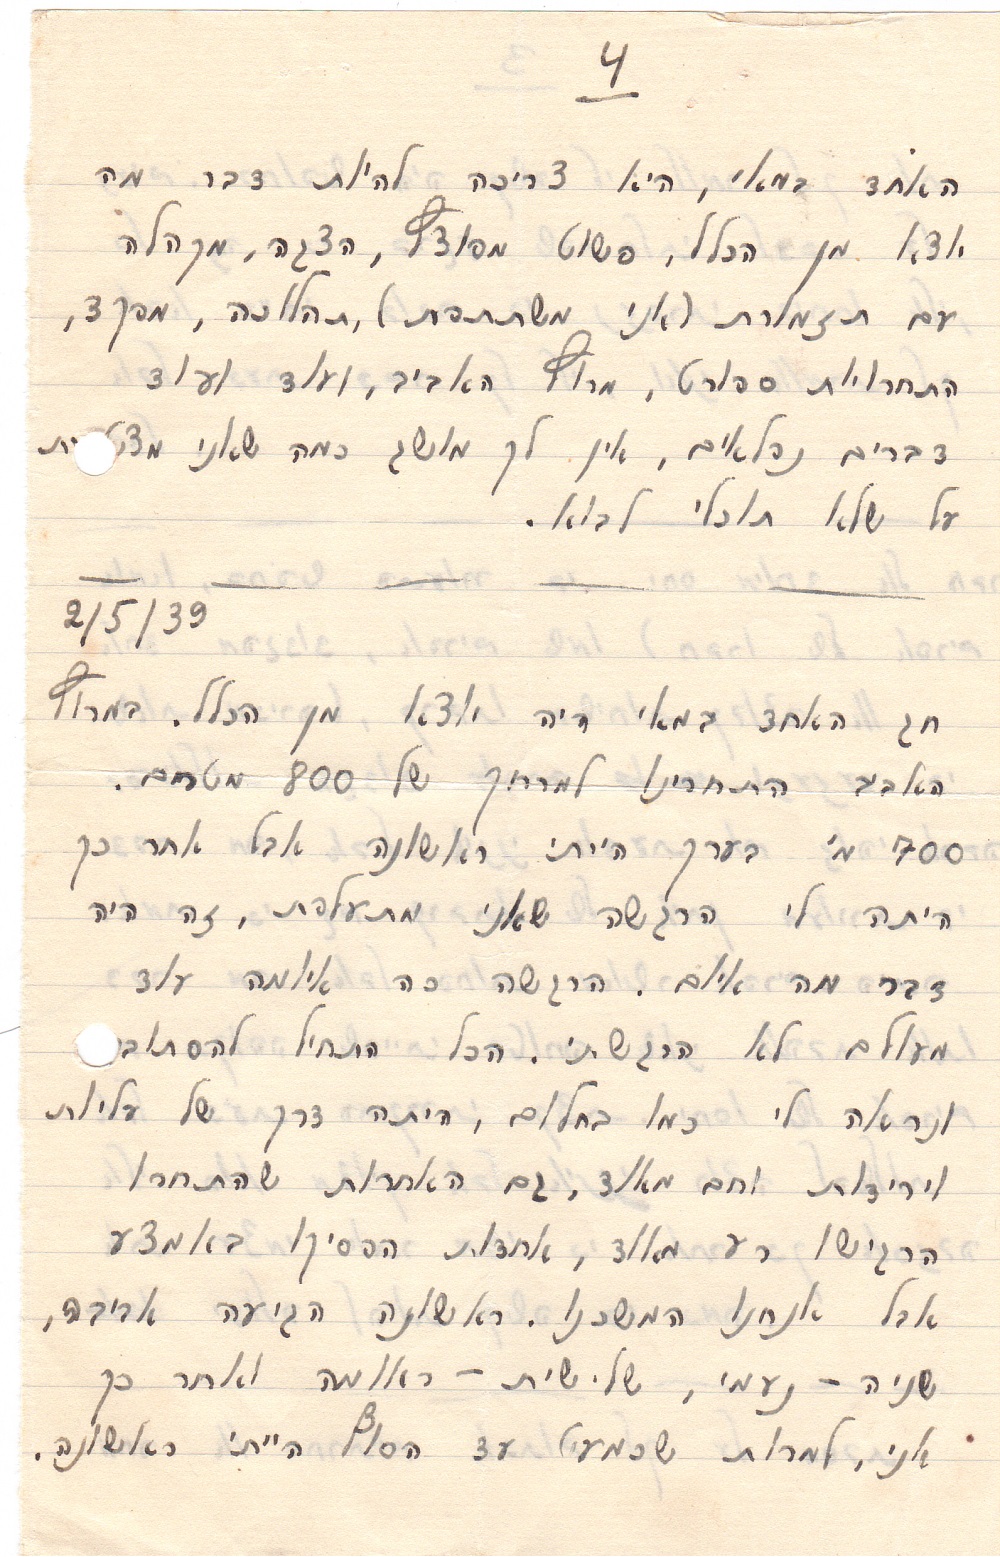 4
האחד במאי, היא צריכה להיות דבר מה
יוצא מן הכלל, פשוט מפוצץ, הצגה, מקהלה
עם תזמורת (אני משתתפת), תהלוכה, מפקד,
התחרויות ספורט, מרוץ האביב, ועוד ועוד
דברים נפלאים, אין לך מושג כמה שאני מצטערת
על שלא תוכלי לבוא.
2/5/39
חג האחד במאי היה יוצא מן הכלל. במרוץ
האביב התחרינו למרחק של 800 מטרים.
700 מ' בערך הייתי ראשונה אבל אחר כך
היתה לי הרגשה שאני מתעלפת, זה היה
דבר מה איום. הרגשה כה איומה עוד
מעולם לא הרגשתי. הכל התחיל להסתובב
ונראה לי כמו בחלום, היתה דרך של עליות
וירידות וחם מאוד, גם האחרות שהתחרו
הרגישו רע מאוד, אחדות הפסיקו באמצע
אבל אנחנו המשכנו. ראשונה הגיעה אביבה,
שניה – נעמי, שלישית – ראומה ואחר כך
אני, למרות שכמעט עד הסוף הייתי ראשונה.